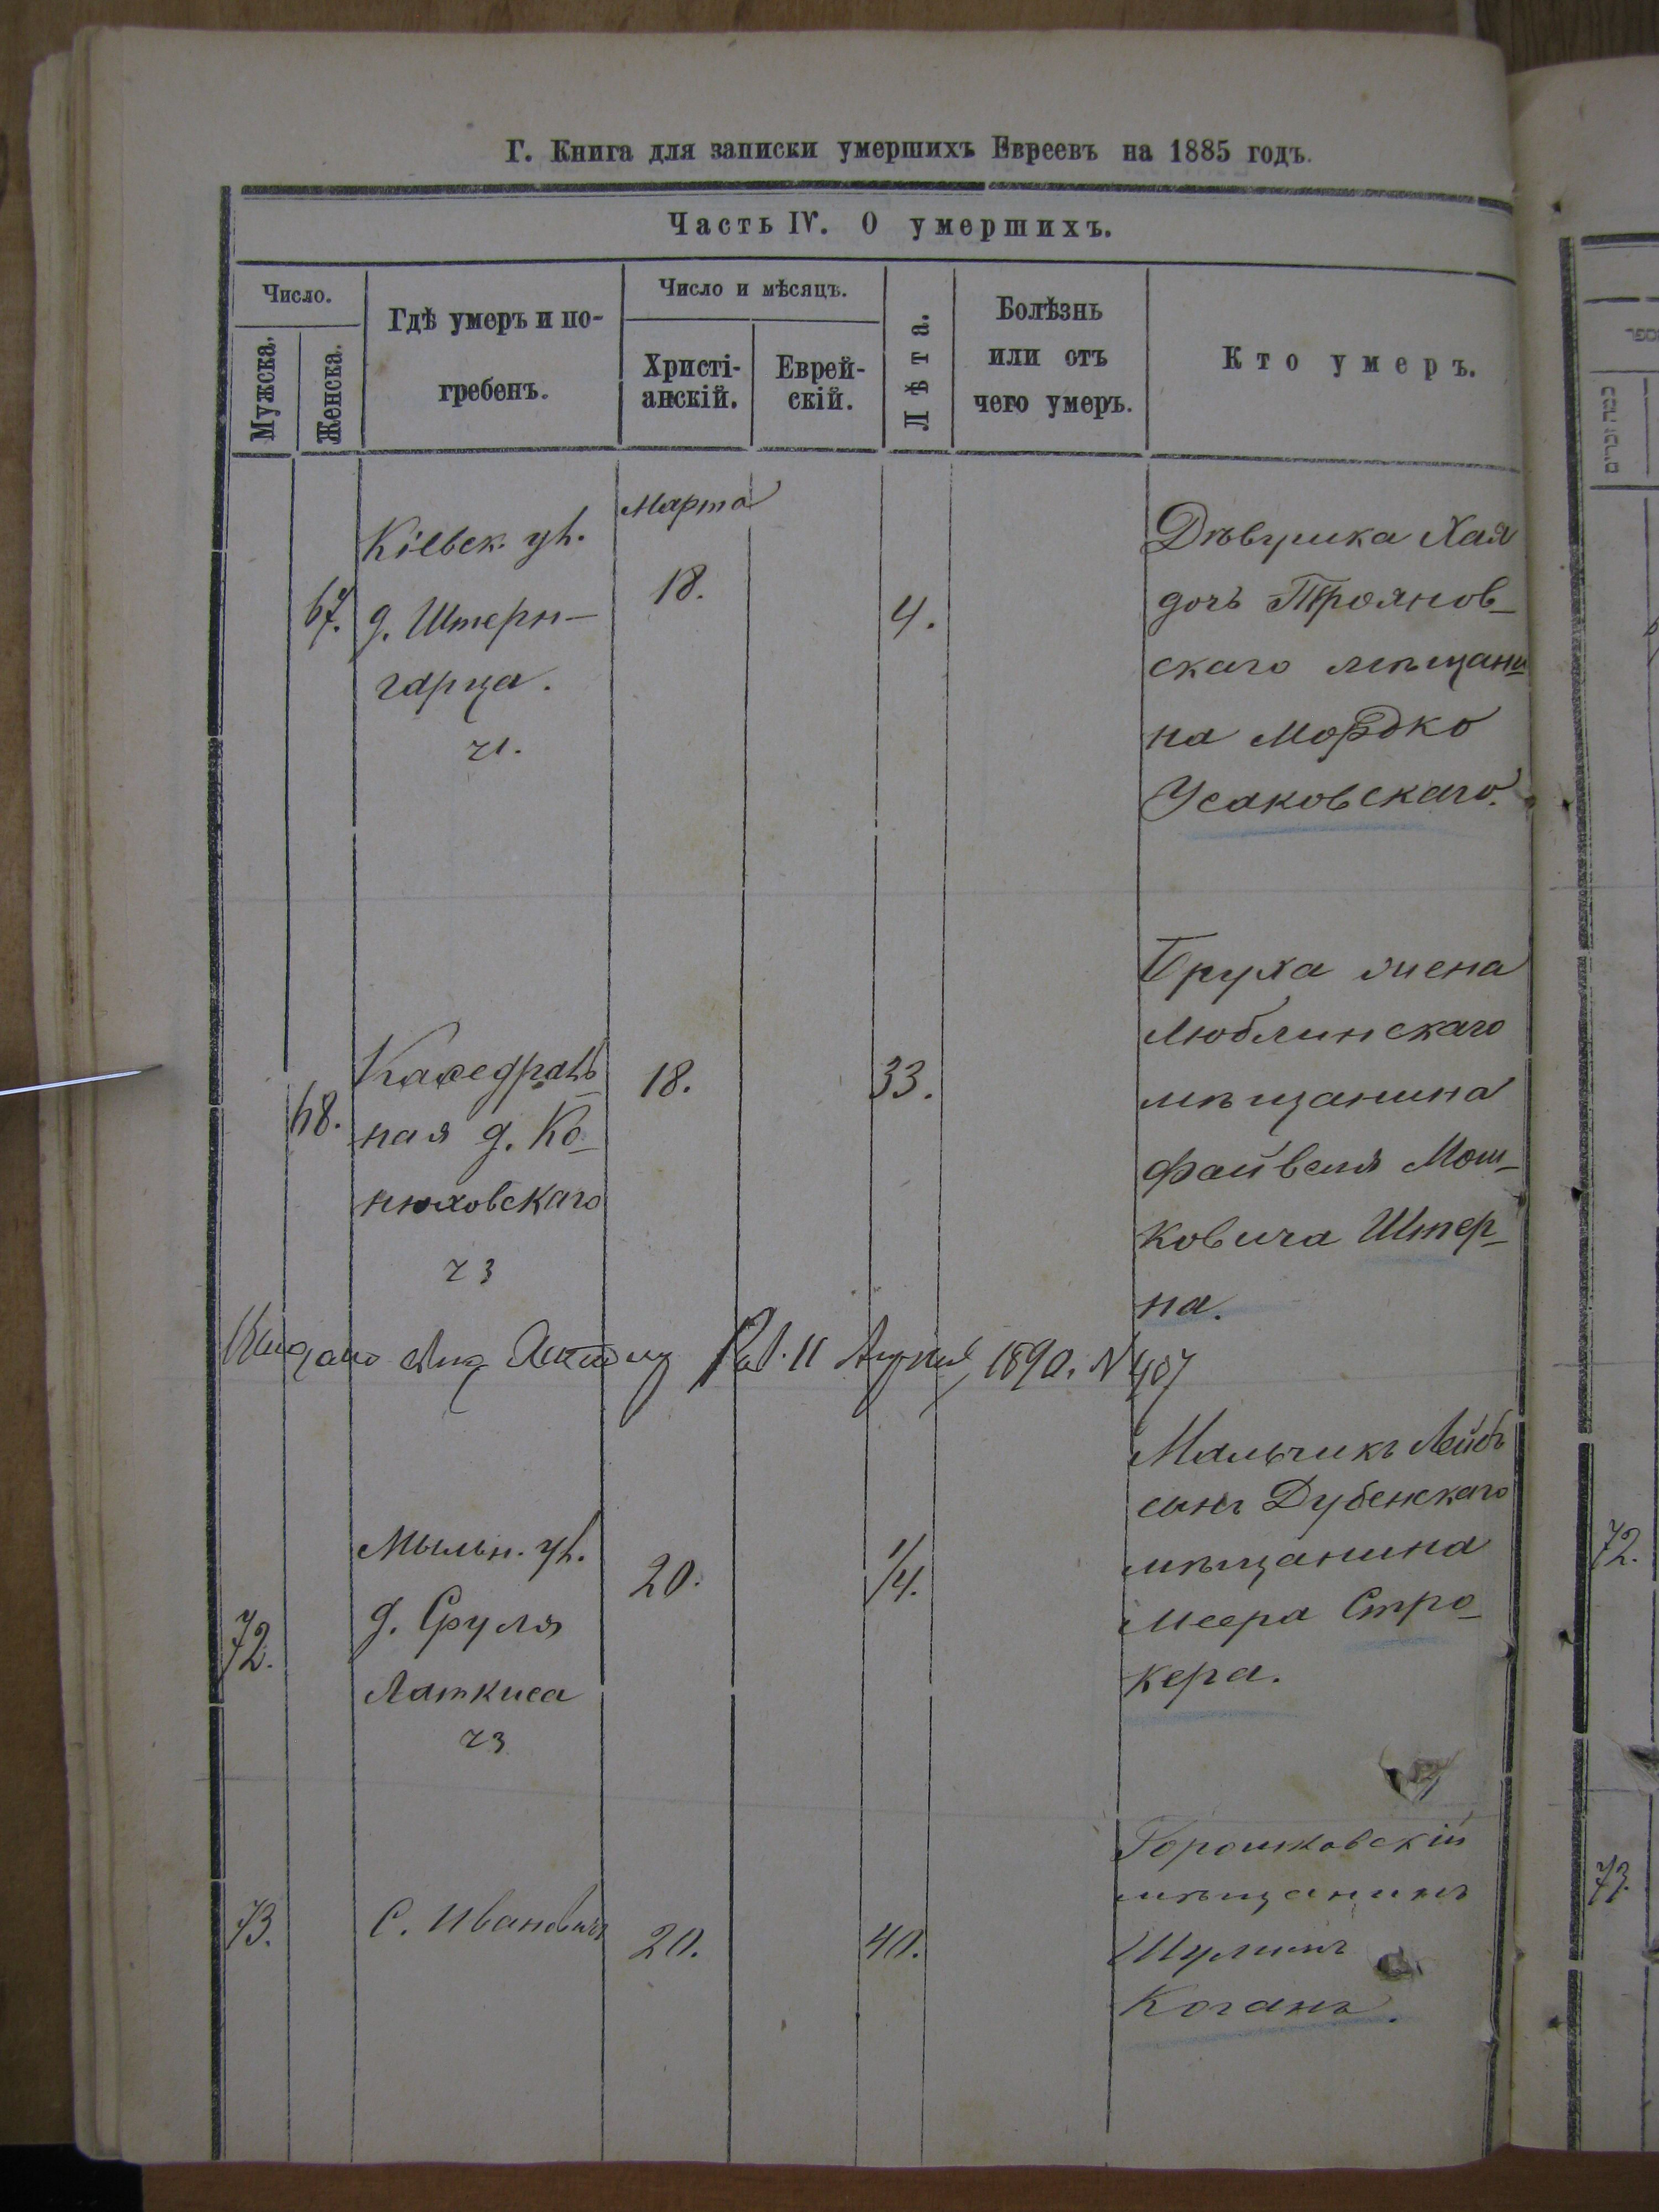 Г. Книга для записки умершихъ Евреевъ на 1885 годъ.
Часть IV. О умершихъ.
Число.
Мужска.
Женска.
Гдѣ умеръ и по-
гребенъ.
Число и мѣсяцъ.
Христі-
анскій.
Еврей-
скій.
Лѣта.
Болѣзнь
или отъ
чего умеръ.
Кто умеръ.
67.
Кіевск. ул.
д. Штерн-
гарца.
ч1.
Марта
18.
4.
Дѣвушка Хая
дочь Трояновскаго
скаго мѣщани-
на Мордко
Усаковскаго.
68.
Каѳедраль-
ная д. Ко-
нюховскаго
ч3
18.
33.
Бруха жена
Люблинскаго
мѣщанина
Файвеля Мош-
ковича Штер-
на.
Выдано 11 1890. N 407
72.
Мыльн. ул.
д. Сруля
Латкиса
ч3
20.
1/4.
Мальчикъ Лейбъ
сынъ Дубенскаго
мѣщанина
Меера Стро-
кера.
73.
С. Ивановичи
20.
40.
Горошковскій
мѣщанинъ
Шулимъ
Коганъ.
72.
73.